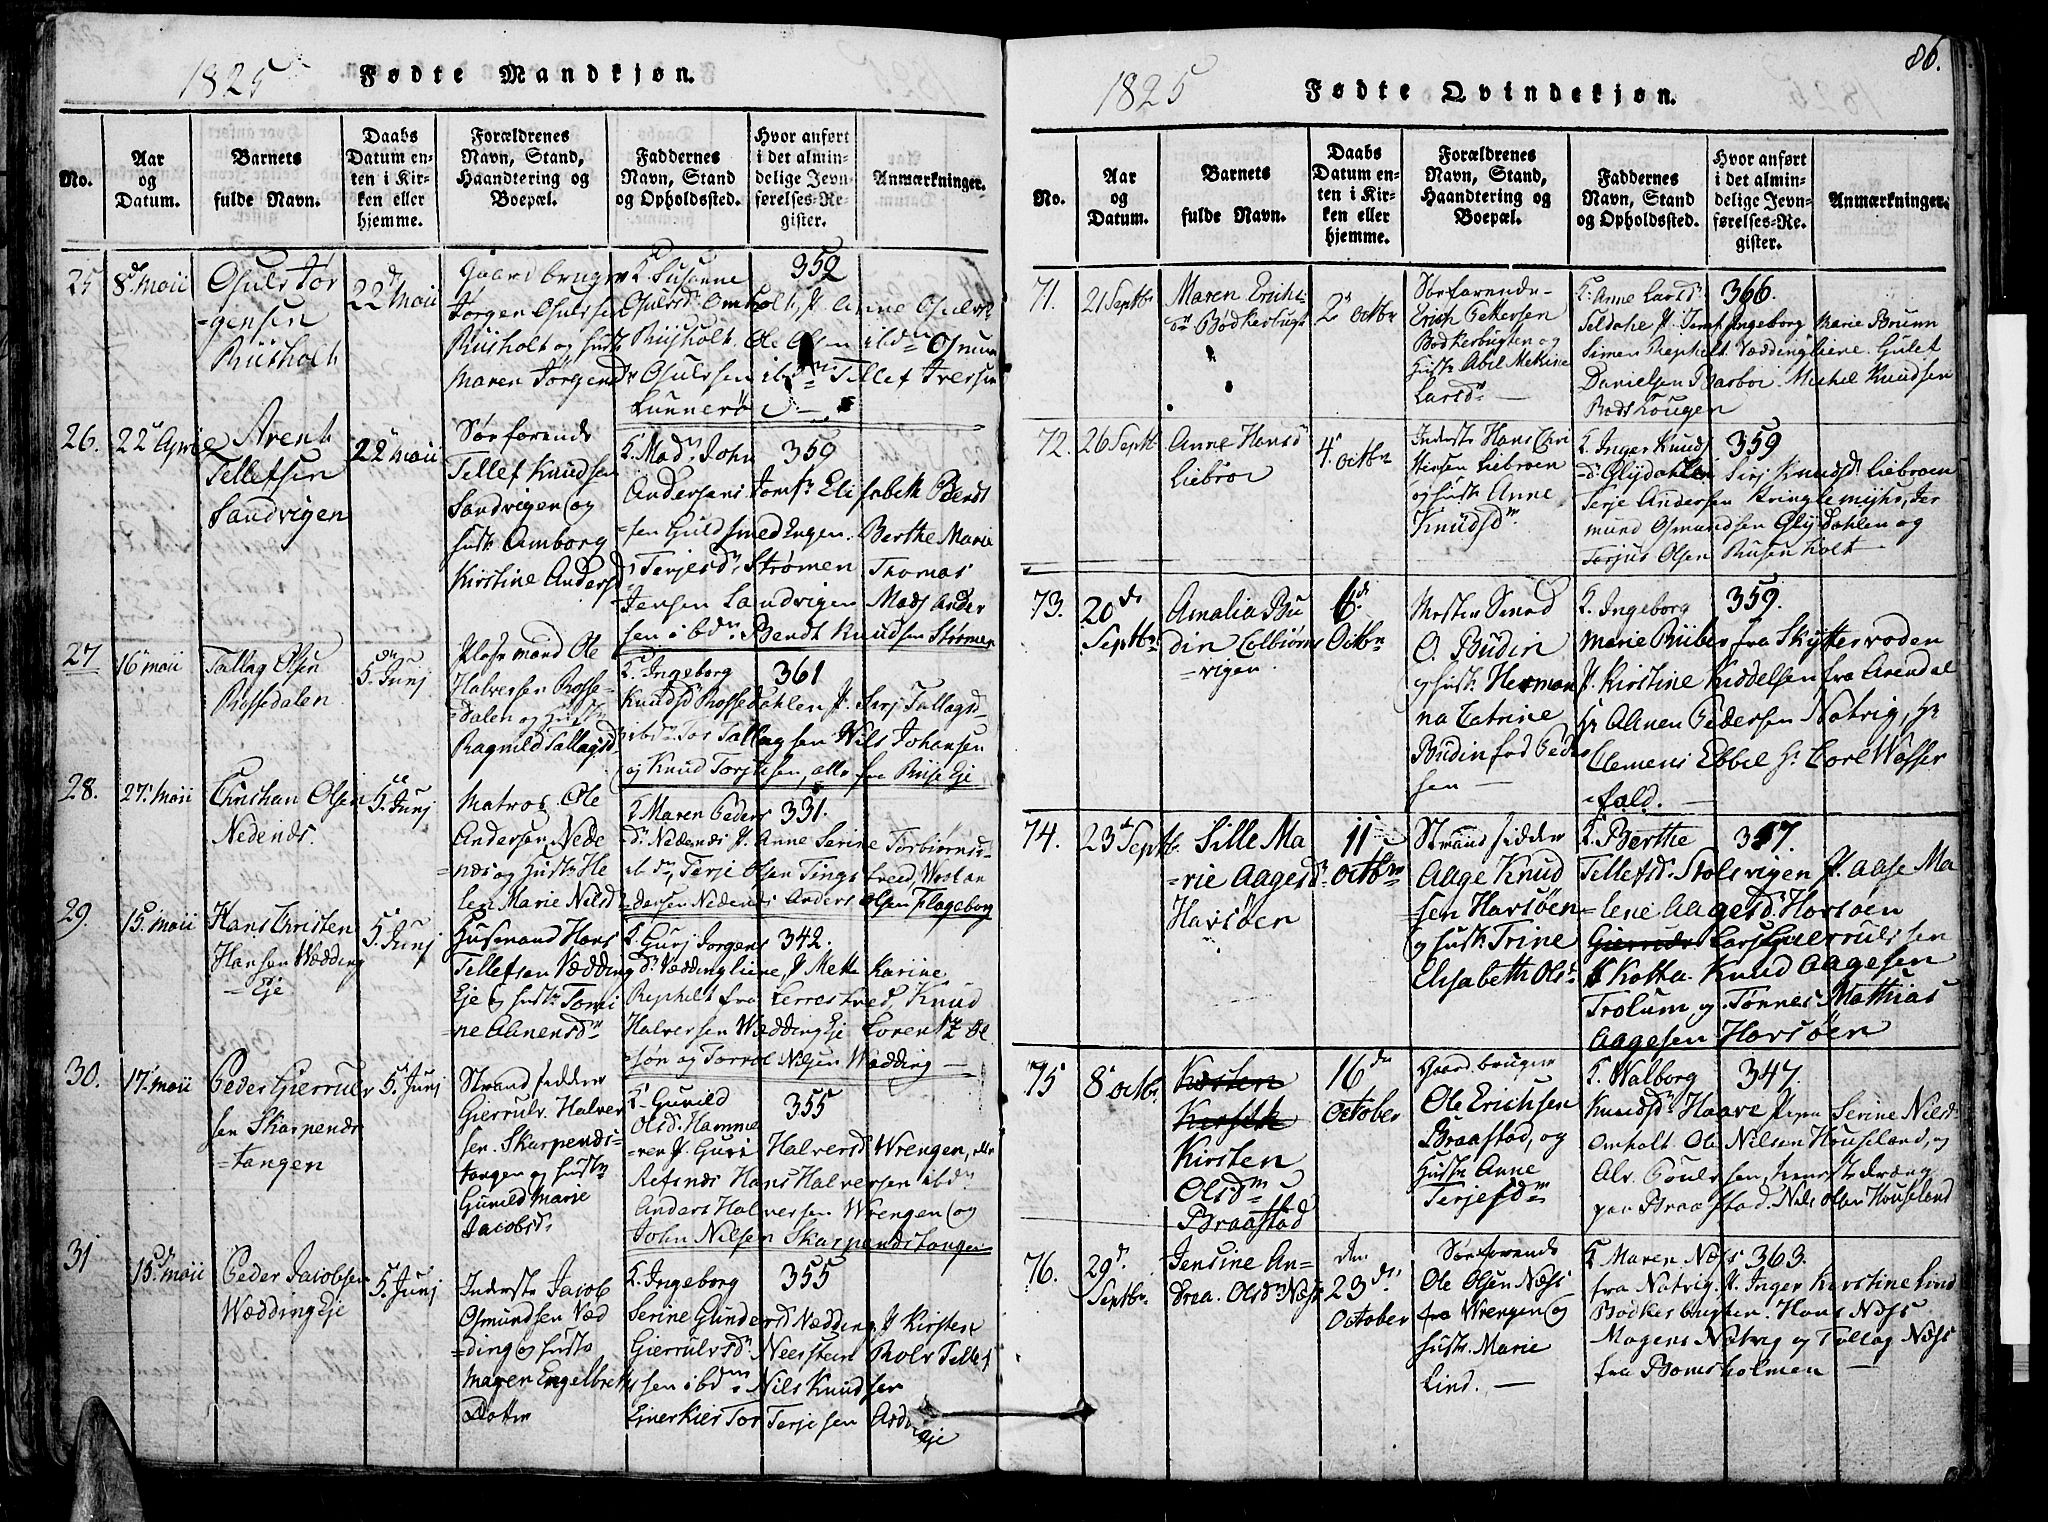 1825 Fødte Mandkjøn.
No.
Aar
og
Datum.
Barnets
fulde Navn.
Daabs
Datum en-
ten i Kir-
ken eller
hjemme.
Forældrenes
Navn, Stand,
Haandtering og
Boepæl.
Faddernes
Navn, Stand
og Opholdssted.
Hvor anført
i det almin-
delige Jevn-
førelses-Re-
gister.
Anmærkninger.
25
8d. Maii
Osuls Jør
-gensen
Riisholt
22d Maii
Gaardbruger
Jørgen Osulsen
Riisholt og hust:
Maren Jørgensd.
K. Susanne 352
Osulsd: Omholt, P. Anne Osulsd.
Riisholt. Ole Olsen ibdm Osmun
Osulsen ibdm Tellef Iversen
Lunnerö
26.
22 April
Arent
Tellefsen
Sandvigen
22 Maii
Sørfarende
Tellef Knudsen
Sandvigen og
hust: Amborg
Kirstine Andersd
K. Mad. John 359
Andersens Jomf. Elisabeth Bendt
-sen Guldsmedengen. Berthe Marie
Terjesd. Strømen Thomas
Jensen Sandvigen Mads Ander
sen ibdm. Bendt Knudsen Strømen
27
16 Maii
Tallag Olsen
Rossedalen
5. Junj
Pladsmand Ole
Halversen Rosse-
-dalen og Hust:
Ragnild Tallagsd
K. Ingeborg 361
Knudsd Rossedahlen P. Sirj Tallagsd.
ibdm Tor Tallagsen Nils Johansen
og Knud Torstensen, alle fra Riise Eje
28.
27. Maii
Christian Olsen
Nedenæs.
5. Junj
Matros Ole
Andersen Nede
-næs og Hust: He
len Marie Nilsd
K. Maren Peders 331.
d. Nedenæs P. Anne Serine Torbiørnsd.
ibdm, Terje Olsen Tingstveed, Westen An
dersen Nedenæs Anders Olsen Flageborg
29.
15 Maii
Hans Christen
Hansen Wædding
Eje
5. Junj
Husmand Hans
Tellefsen Vædding
Eje og hust: Tomi
-ne Aanensdr
K. Gurj Jorgens 342.
dr. Væddingliene, P. Mette Karine
Rephelt fra Lerrestved, Knud
Halversen Wædding Eje Lorentz Ol
søn og Torvol Nilsen Wædding
30.
17. Maii
Peder Gierrulv
sen Skarpends
-tangen
5. Junj
Strandsidder
Gierrulv Halver
sen. Skarpends-
tangen og hust:
Gunild Marie
Jacobsd.
K. Gunild 355
Olsd. Hamme
ren P. Guri Halversd Wrengen,
Refsnæs Hans Halversen ibdm
Anders Halversen Wrengen og
John Nilsen Skarpendstangen
31
15d. Maii
Peder Jacobsen
Wædding Eje
5. Junj
Inderste Jacob
Osmundsen Væd
-ding og hust:
Maren Engelbreth
Dotter
K. Ingeborg 355
Serine Gunders d Vædding, P. Kirsten
Gierrulvsd. Neersteen Rolv Tellef
sen ibdm. Nils Knudsen
Ejnerkiær Tor Terjesen
eje
86.
1825 Fødte Qvindekjøn.
No.
Aar
og
Datum.
Barnets
fulde Navn.
Daabs
Datum en-
ten i Kir-
ken eller
hjemme.
Forældrenes
Navn, Stand,
Haandtering og
Boepæl.
Faddernes
Navn, Stand
og Opholdssted.
Hvor anført
i det almin-
delige Jevn-
førelses-Re-
gister.
Anmærkninger.
71.
21 Septbr
Maren Erichs
dr Bødkerbugt
2 octbr
Sørfarende
Erich Pettersen
Bødkerbugten og
Hust: Abil Mekine
Larsd.
K. Anne Larsd. 366.
Seldahl P. Jomf. Ingeborg Marie Brunn
Simen Rephelt Væddingliene. Gulet
Danielsen Barboe. Michel Knudsen
Bodshougen
72.
26 Septbr
Anne Hansd
Liebroe
4. octbr
Inderste Hans Chri
stensen Liebroen
og hust: Anne
Knudsdr.
K. Inger Knuds 359
d. Glydahlen Sirj Knudsd. Liebroen
Terje Andersen Kringlemyhr, Jer
mund Osmundsen Glydahlen og
Terjus Olsen Rusenholt
73.
20de
Septbr
Amalia Bu
din Colbiørns
-vigen
6d.
Octbr
Mester Smed
O. Budin
og hust: Herman
na Catrine
Budin fød Peder
sen
K. Ingeborg 359.
Marie Riiber fra Skyttervoden
P. Kirstine Kiddelsen fra Arendal
Hr Aanen Pedersen Natvig, Hr
Clemens Ebbel Hr Carl Wasser
-fald.
74.
23d Septbr.
Sille Ma
-rie Aagesd.
Havsøen
11te
octbr
Strandsidder
Aage Knud
-sen Havsøen
og hust: Trine
Elisabeth Olsd.
K. Berthe 347
Tellefsd. Stolsvigen P. Aase Ma
-lene Aagesd. Havsøen
Gierrulv Lars Gierrulvsen
Kotta. Knud Aagesen
Trolum og Tønnes Mathias
Aagesen Havsöen
75
8 octbr.
Kirsten
Kirsten
Olsdr
Braastad
16de
October
Gaardbruger
Ole Erichsen
Braastad, og
Hustr Anne
Terjesdr
K. Walborg 347.
Knudsd. Haave Pige Serine Nielsd.
Omholt. Ole Nilsen Houseland, og
Alv Poulssen, tjenestedreng
paa Braastad. Nils Olsen Houseland
76.
29d.
Septbr.
Jensine An-
drea. Olsd. Næss
den
23de
October
Sørfarende
Ole Olsen Næss
fra Wrengen og
hust: Marie
Lind.
K. Maren Næss 363.
fra Natvig. P. Inger Kirstine Lind
Bødkerbugten. Hans Næss
Mogens Natvig og Tallag Næss
fra Bomsholmen